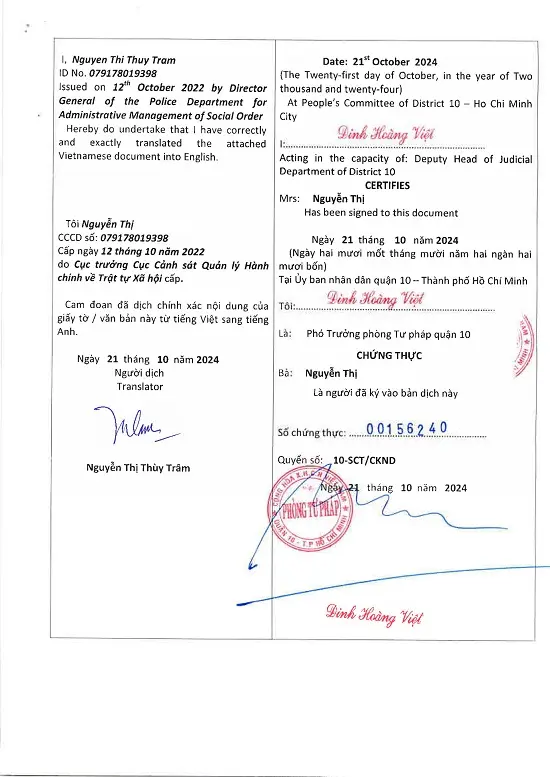 I, Nguyen Thi Thuy Tram
ID No. 079178019398
Issued on 12th October 2022 by Director
General of the Police Department for
Administrative Management of Social Order
Hereby do undertake that I have correctly
and exactly translated the attached
Vietnamese document into English.
Tôi Nguyễn Thị
CCCD số: 079178019398
Cấp ngày 12 tháng 10 năm 2022
do Cục trưởng Cục Cảnh sát Quản lý Hành
chính về Trật tự Xã hội cấp.
Cam đoan đã dịch chính xác nội dung của
giấy tờ / văn bản này từ tiếng Việt sang tiếng
Anh.
Ngày 21 tháng 10 năm 2024
Người dịch
Translator
Nguyễn Thị Thùy Trâm
Date: 21st October 2024
(The Twenty-first day of October, in the year of Two
thousand and twenty-four)
At People's Committee of District 10 – Ho Chi Minh
City
I: Đinh Hoàng Việt
Acting in the capacity of: Deputy Head of Judicial
Department of District 10
CERTIFIES
Mrs: Nguyễn Thị
Has been signed to this document
Ngày 21 tháng 10 năm 2024
(Ngày hai mươi mốt tháng mười năm hai ngàn hai
mươi bốn)
Tại Ủy ban nhân dân quận 10 – Thành phố Hồ Chí Minh
Tôi: Đinh Hoàng Việt
Là: Phó Trưởng phòng Tư pháp quận 10
CHỨNG THỰC
Bà: Nguyễn Thị
Là người đã ký vào bản dịch này
Số chứng thực: 00156240
Quyển số: 10-SCT/CKND
Ngày 21 tháng 10 năm 2024
CỘNG HÒA X.H.C.N VIỆT NAM
PHÒNG TƯ PHÁP
QUẬN 10 - T.P HỒ CHÍ MINH
Đinh Hoàng Việt